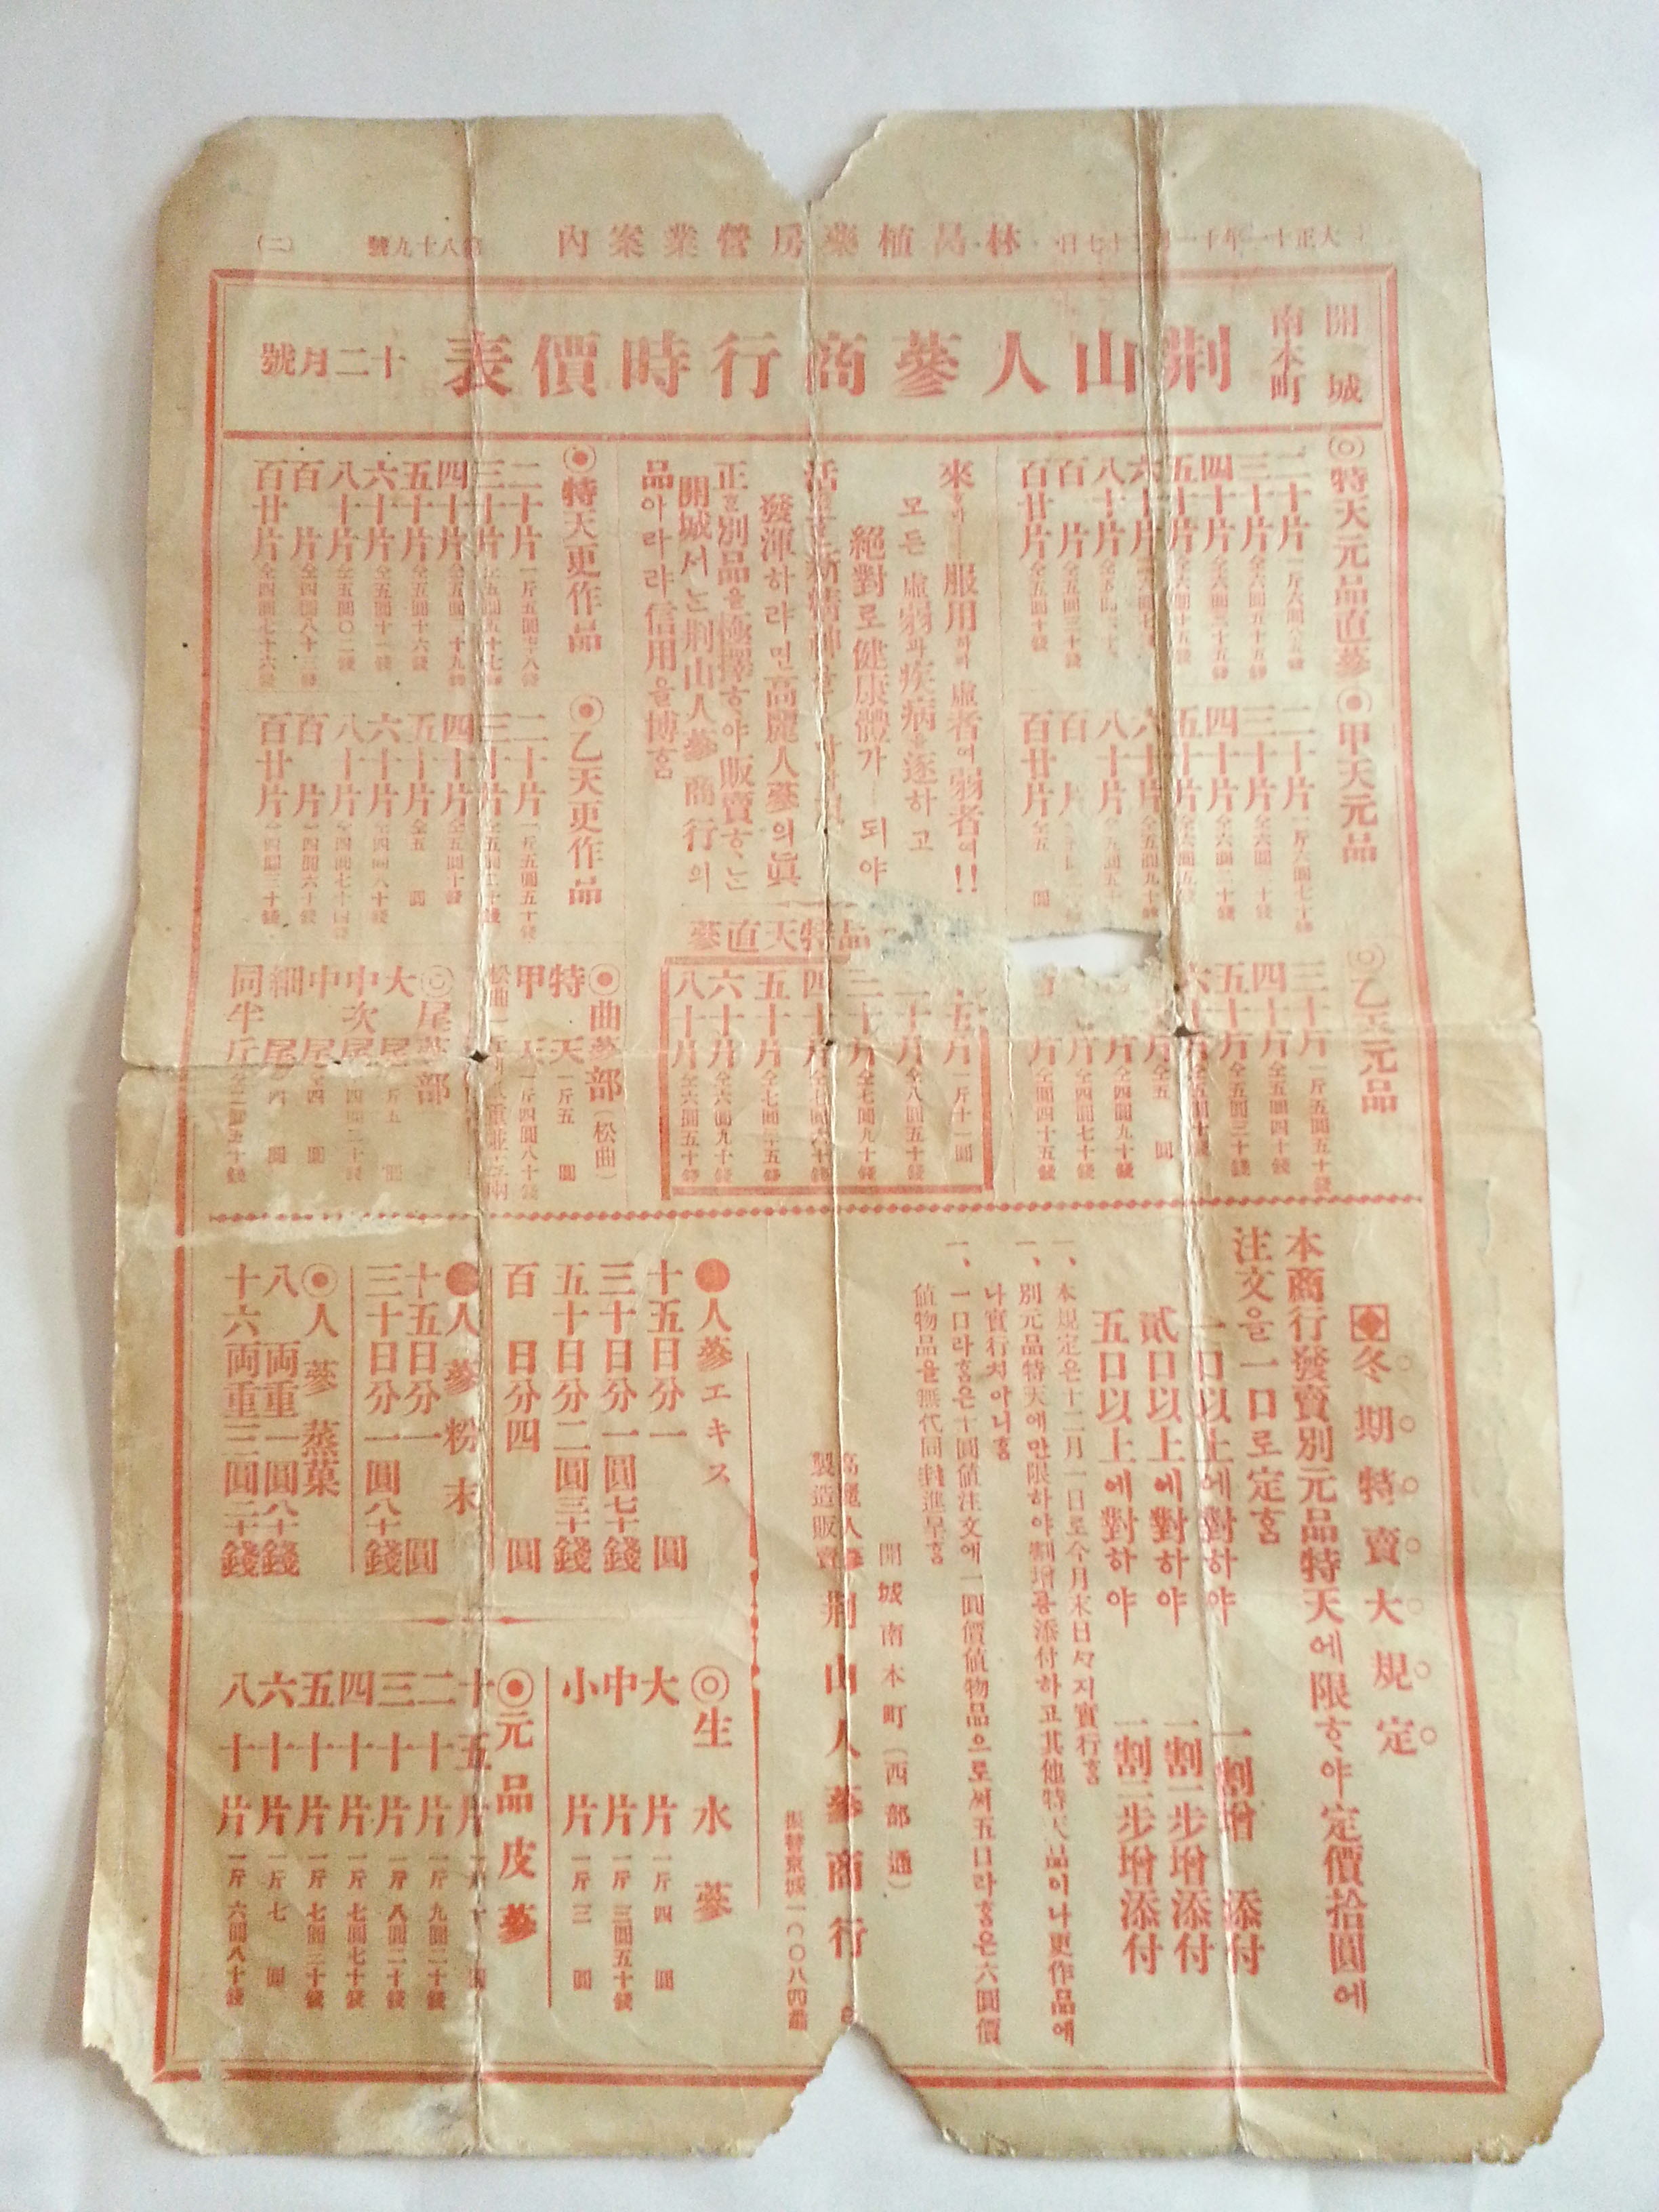 大正十一年十一月二十七日
林昌植藥房營業案內
第八十九號
(二)
開城
南本町
荊山人蔘商行時價表
十二月號
◎特天元品直蔘
二十片
三十片
四十片 仝六圓三十五錢
五十片 仝六圓十五錢
六十片
八十片
百片 仝五圓三十錢
百廿片 仝五圓十錢
◉甲天元品
二十片 一斤六圓七十錢
三十片
四十片 仝六圓二十錢
五十片
六十片 仝五圓九十錢
八十片
百片
百廿片 仝五圓
◎乙天元品
三十片 一斤五圓五十錢
四十片 仝五圓四十錢
五十片 仝五圓三十錢
六十片
片 仝五圓
片 仝四圓九十錢
片 仝四圓七十錢
片 仝四圓四十五錢
來하라 服用하라 虛者여 弱者여!!
모든 虛弱과 疾病을 逐하고
絕對로 健康體가 되야
發渾하랴면 高麗人蔘의 眞
正한 別品을 極擇ᄒᆞ야 販賣ᄒᆞᄂᆞᆫ
開城서ᄂᆞᆫ 荊山人蔘商行의
品아라랴 信用을 博홈
品特天直蔘
十五片 一斤十一圓
二十片 仝八圓五十錢
三十片 仝七圓九十錢
四十片 仝七圓六十錢
五十片 仝七圓三十五錢
六十片 仝六圓九十錢
八十片 仝六圓五十錢
◉特天更作品
二十片
三十片 仝五圓五十七錢
四十片
五十片 仝五圓十六錢
六十片 仝五圓十一錢
八十片 仝五圓〇二錢
百片 仝四圓八十三錢
百廿片 仝四圓七十六錢
◉乙天更作品
二十片 一斤五圓五十錢
三十片 仝五圓二十錢
四十片 仝五圓十錢
五十片 仝五圓
六十片 仝四圓八十錢
八十片 仝四圓七十錢
百片 仝四圓六十錢
百廿片 仝四圓三十錢
◉曲蔘部(松曲)
特天 一斤五圓
甲天 一斤四圓八十錢
◎尾蔘部
大尾 一斤五圓
中次尾 仝四圓二十錢
中尾 仝四圓
細尾 仝四圓
同半斤 仝二圓五十錢
冬期特賣大規定
本商行發賣別元品特天에限ᄒᆞ야定價拾圓에
注文을一口로定홈
一口以上에對하야 一割增添付
貳口以上에對하야 一割一步增添付
五口以上에對하야 一割二步增添付
一、本規定은十二月一日로今月末日ᄭᆞ지實行홈
一、別元品特天에만限하야割增을添付하고其他特天品이나更作品에
나實行치아니홈
一、一口라홈은十圓値注文에一圓價値物品으로써五口라홈은六圓價
値物品을無代同封進呈홈
開城南本町(西部通)
高麗人蔘
製造販賣
荊山人蔘商行
振替京城一〇〇八四番
●人蔘エキス
十五日分 一圓
三十日分 一圓七十錢
五十日分 二圓三十錢
百日分 四圓
●人蔘粉末
十五日分 一圓
三十日分 一圓八十錢
◉人蔘蒸菓
八両重 一圓八十錢
十六両重 三圓二十錢
◎生水蔘
大片 一斤四圓
中片 一斤三圓五十錢
小片 一斤三圓
◉元品皮蔘
十五片
二十片 一斤九圓二十錢
三十片 一斤八圓二十錢
四十片 一斤七圓七十錢
五十片 一斤七圓三十錢
六十片 一斤七圓
八十片 一斤六圓八十錢